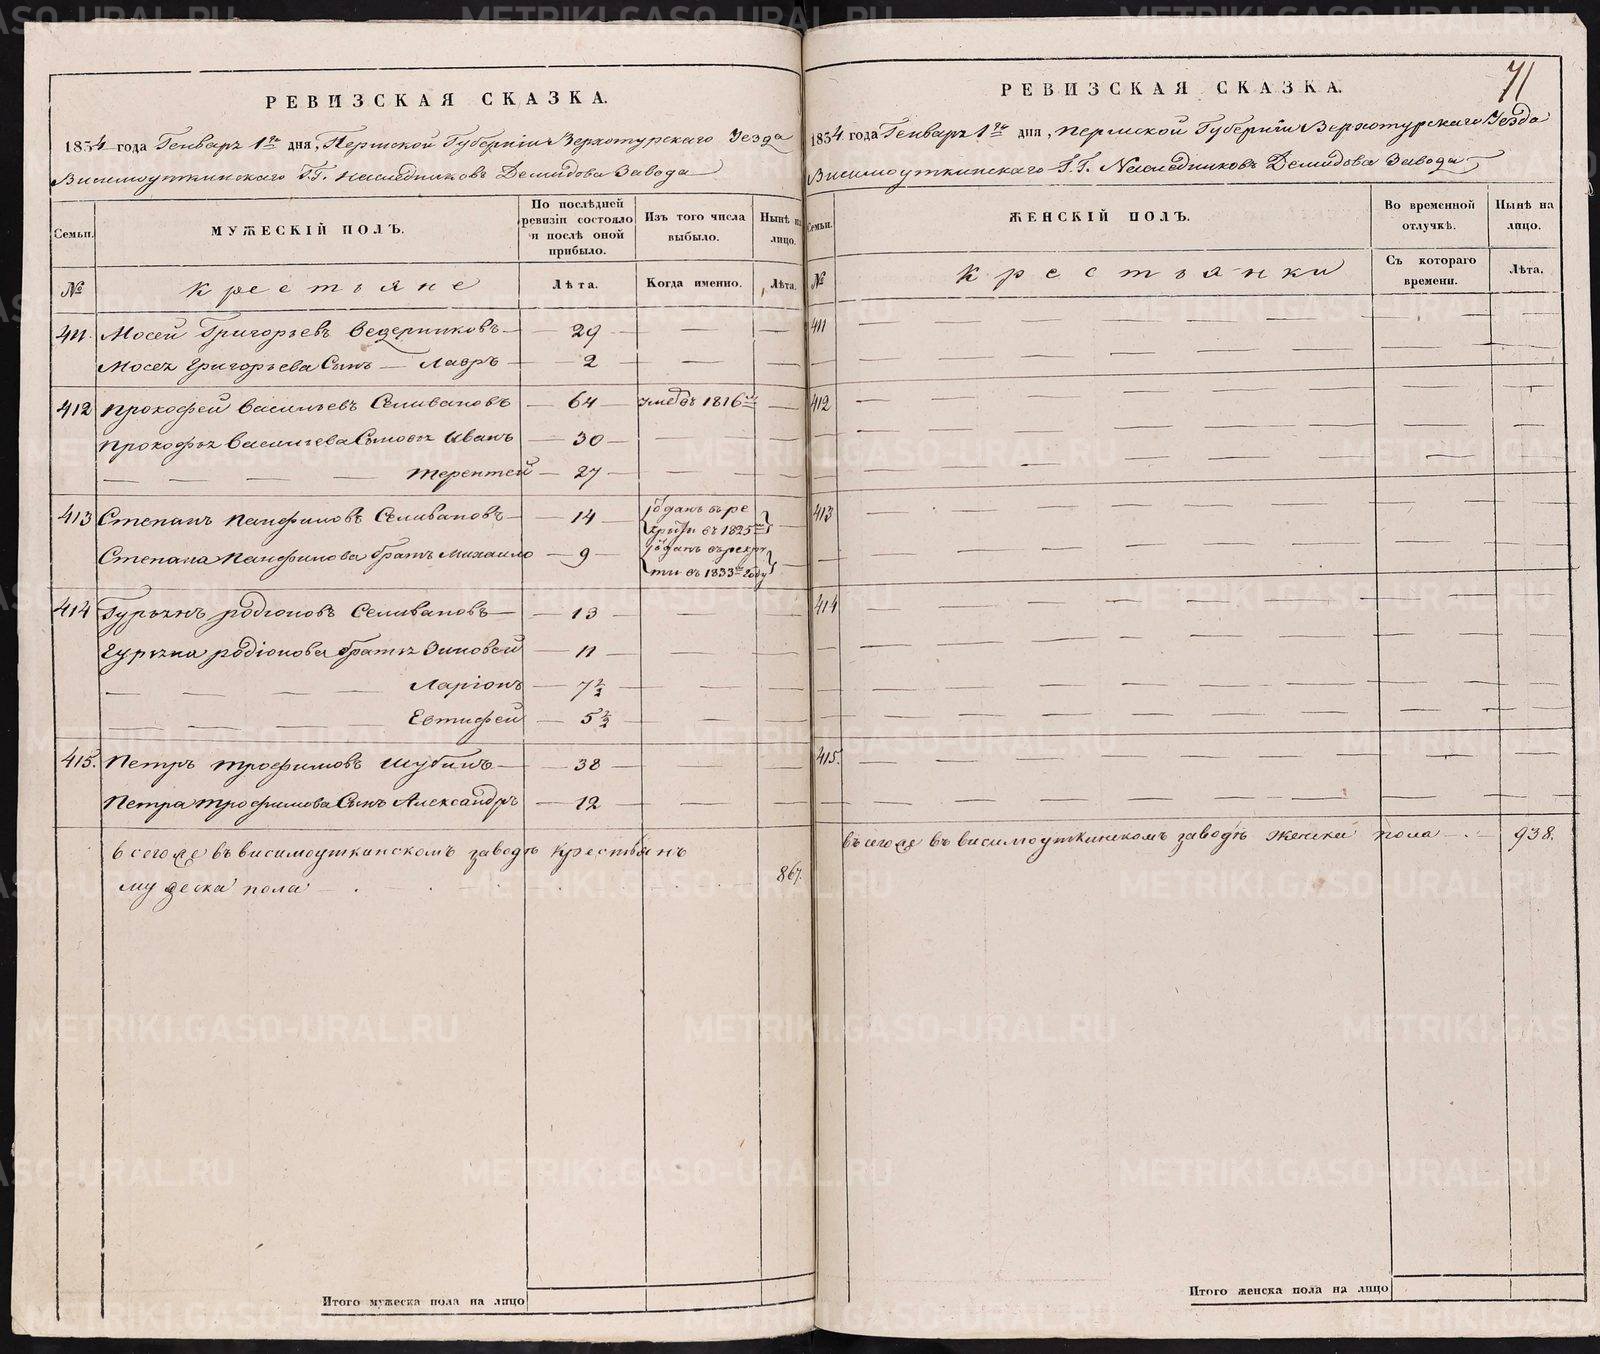 РЕВИЗСКАЯ СКАЗКА.
1834 года Генваря 1го дня, Пермской Губерніи Верхотурскаго Уезда
Висимоуткинскаго Г.Г. Наследниковъ Демидова Завода
Семьи. МУЖЕСКІЙ ПОЛЪ. По послѣдней ревизіи состояло и послѣ оной прибыло. Изъ того числа выбыло. Нынѣ на лицо.
№ Крестьяне Лѣта. Когда именно. Лѣта.
411. Мосей Григорьевъ Ведерниковъ — 29 — — —
Мосея Григорьева Сынъ — Лавръ — 2 — — —
412 Прокофей Васильевъ Селивановъ — 64 — умеръ въ 1816м —
Прокофья Васильева Сыновья Иванъ — 30 — — —
— — — — Терентей — 27 — — —
413 Степанъ Панфиловъ Селивановъ — 14 — отданъ въ ре
круты въ 1825м —
Степана Панфилова братъ Михайло — 9 — отданъ въ рекру
ты въ 1833м Году
414 Гурьянъ Родіоновъ Селивановъ — 13 — — —
Гурьяна Родіонова братья Зиновей — 11 — — —
— — — — Ларіонъ — 7 1/2 — — —
— — — — Евтифей — 5 1/2 — — —
415. Петръ Трофимовъ Шубинъ — 38 — — —
Петра Трофимова Сынъ Александръ — 12 — — —
Всего же въ висимоуткинскомъ заводѣ крестьянъ
мужеска пола — 867.
Итого мужеска пола на лицо
71
РЕВИЗСКАЯ СКАЗКА.
1834 года Генваря 1го дня, Пермской Губерніи Верхотурскаго Уезда
Висимоуткинскаго Г.Г. Наследниковъ Демидова Завода
Семьи. ЖЕНСКІЙ ПОЛЪ. Во временной отлучкѣ. Нынѣ на лицо.
№ Крестьянки Съ котораго времени. Лѣта.
411
412
413
414
415.
Всего же въ висимоуткинскомъ заводѣ женска пола — 938.
Итого женска пола на лицо
METRIKI.GASO-URAL.RU